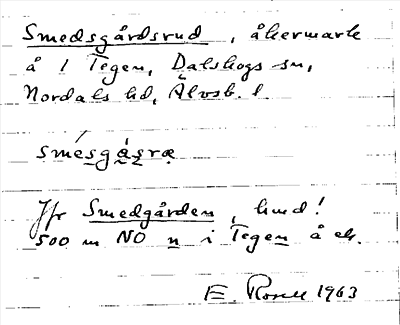 Smedsgårdsrud, åkermark
å 1 Tegen, Dalskogs sn,
Nordals hd, Älvsb. l.
smésgá̱s̱ræ
Jfr Smedgården, hmd!
500 m NO n i Tegen å ek.
E. Rosell 1963